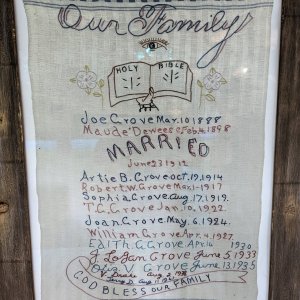 Our Family
HOLY BIBLE
Joe Grove Mar. 10 1888
Maude Deweese Feb. 4. 1898
MARRIED
June 23 1912
Artie B. Grove oct. 19, 1914
Robert W. Grove Mar. 1-1917
Sophia Grove Aug. 17. 1919.
T. G. Grove Jan. 10, 1922.
Joan. Grove. May. 6, 1924.
William Grove Apr. 4. 1927
Edith G Grove Apr. 16 1930
J LaJan Grove June 5 1933
V Grove June 13 1935
GOD BLESS OUR FAMILY